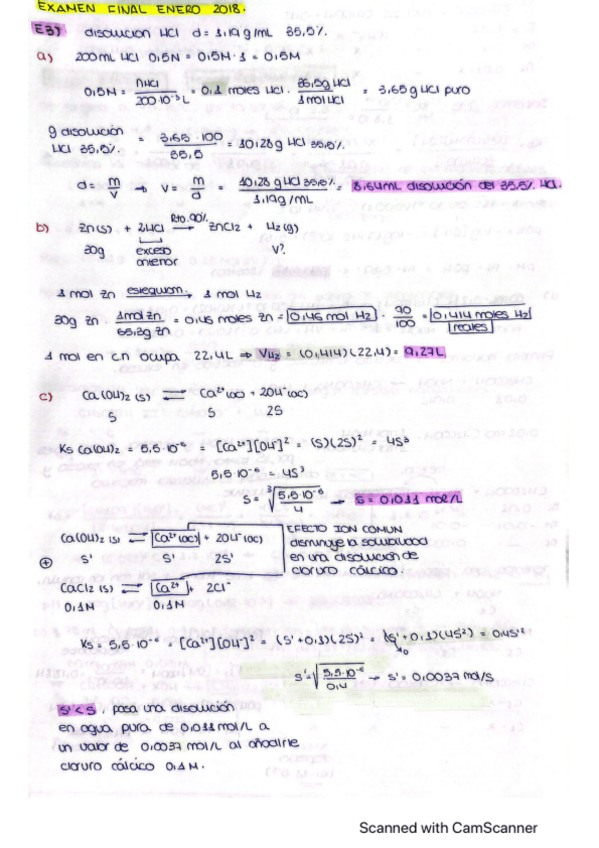 EXAMEN FINAL ENERO 2018.
E3) disolucion HCl d = 1,19 g/mL 35,5%.
a) 200mL HCl 0,5N = 0,5M · 1 = 0,5M
0,5M = nHCl / 200·10⁻³L = 0,1 moles HCl · 36,5g HCl / 1mol HCl = 3,65 g HCl puro
g disolución HCl 35,5% = 3,65 · 100 / 35,5 = 10,28 g HCl 35,5%
d = m/V → V = m/d = 10,28 g HCl 35,5% / 1,19 g/mL = 8,64mL disolución del 35,5% HCl.
b) Zn(s) + 2HCl Rto.90% → ZnCl2 + H2(g)
30g exceso anterior V?
1 mol Zn estequiom. → 1 mol H2
30g Zn · 1mol Zn / 65,3g Zn = 0,46 moles Zn = 0,46 mol H2 · 90/100 = 0,414 moles H2 reales
1 mol en c.n ocupa 22,4L ⇒ VH2 = (0,414)(22,4) = 9,27L
c) Ca(OH)2 (s) ⇌ Ca²⁺(ac) + 2OH⁻(ac)
S S 2S
Ks Ca(OH)2 = 5,5·10⁻⁶ = [Ca²⁺][OH⁻]² = (S)(2S)² = 4S³
5,5·10⁻⁶ = 4S³
S = ³√5,5·10⁻⁶ / 4 → S = 0,011 mol/L
Ca(OH)2 (s) ⇌ Ca²⁺(ac) + 2OH⁻(ac)
S' S' 2S'
EFECTO ION COMUN
disminuye la solubilidad
en una disolución de
cloruro cálcico.
⊕
CaCl2 (s) ⇌ Ca²⁺ + 2Cl⁻
0,1M 0,1M
Ks = 5,5·10⁻⁶ = [Ca²⁺][OH⁻]² = (S'+0,1)(2S)² = (S'+0,1)(4S²) = 0,4S'²
→0
S' = √5,5·10⁻⁶ / 0,4 → S' = 0,0037 mol/S
S' < S, pasa una disolución
en agua pura de 0,011 mol/L a
un valor de 0,0037 mol/L al añadirle
cloruro cálcico 0,1M.
Scanned with CamScanner